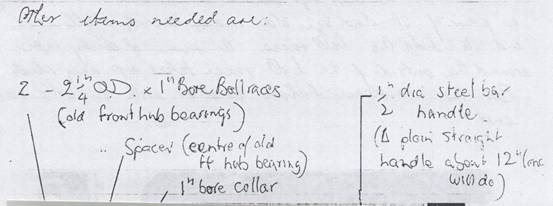 Other items needed are:
2 - 2 1/4" O.D. x 1" Bore Ballraces
(old front hub bearings)
" Spacer (centre of old
ft hub bearing)
1" bore collar
1/2" dia steel bar
handle.
(A plain straight
handle about 12" long
will do)